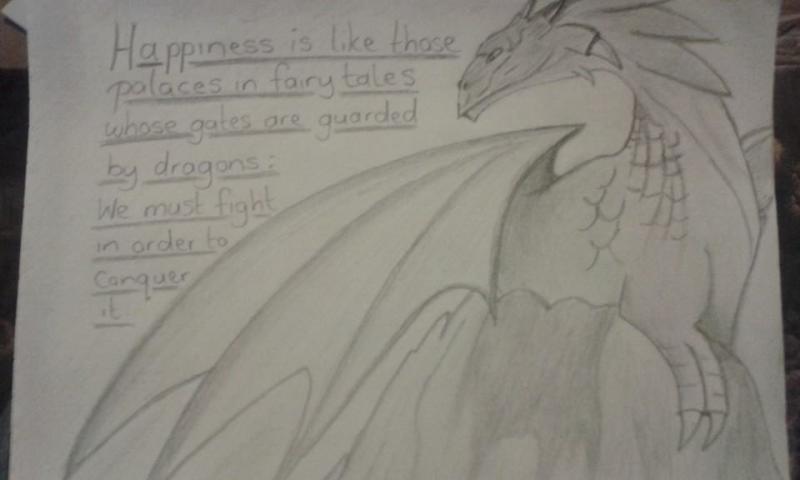 Happiness is like those
palaces in fairy tales
whose gates are guarded
by dragons:
We must fight
in order to
Conquer
it.